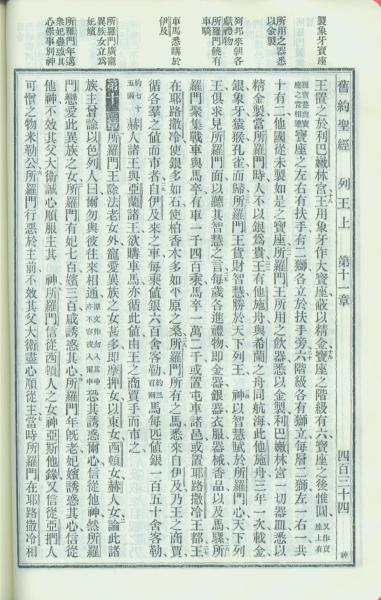 製象牙寶座
所用之器悉以金製
列邦來朝各獻禮物
所羅門饒有車騎
車馬悉購於伊及
所羅門廣寵異族女立為妃嬪
所羅門年邁眾妃嬪惑其心崇事別神
舊約聖經 列王上 第十一章 四百三十四 神
王置之於利巴嫩林宮王用象牙作大寶座蔽以精金寶座之階級有六寶座之後惟圓又作寶座上有
寶座之左右有扶手有二獅各立於扶手旁六階級各有獅立每層二獅左一右一共
十有二他國從未製如是之寶座所羅門王所用之飲器悉以金製利巴嫩林宮一切器皿悉以
精金製當所羅門時人不以銀爲貴王有他施舟與希蘭之舟同航海此他施舟三年一次載金
銀象牙猿猴孔雀而歸所羅門王貨財智慧勝於天下列王 神以智慧賦於所羅門心天下列
王俱求見所羅門面以聽其智慧之言每歲各進禮物即金器銀器衣服器械香品以及馬騾所
羅門聚集戰車與馬卒有車一千四百乘馬卒一萬二千或置屯車諸邑或置耶路撒冷王都王
在耶路撒冷使銀多如石使柏香木多如平原之桑所羅門所有之馬悉來自伊及乃王之商賈
循各羣之值而市者自伊及來之車每乘值銀六百舍客勒約三百兩馬每匹值銀一百五十舍客勒
約七十五兩赫人諸王與亞蘭諸王欲購車馬亦循此值由王之商賈手而市之
第十一章所羅門王除法老女外寵愛異族之女甚多即摩押女以東女西頓女赫人女論此諸
族主曾諭以色列人曰爾勿與彼往來相通恐其誘惑爾心信從他神然所羅
門戀愛此異族之女所羅門有妃七百嬪三百咸誘惑其心所羅門年旣老妃嬪誘惑其心信從
他神不效其父大衛誠心順服主其 神所羅門信從西頓人之女神亞斯他錄又信從亞捫人
可憎之物米勒公所羅門行惡於主前不效其父大衛盡心順從主當時所羅門在耶路撒冷相